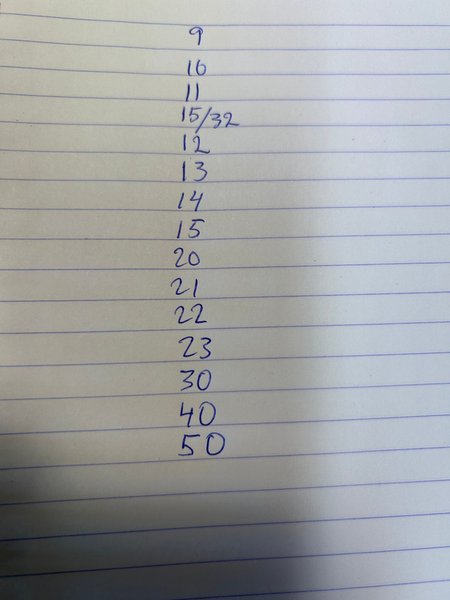 9
10
11
15/32
12
13
14
15
20
21
22
23
30
40
50